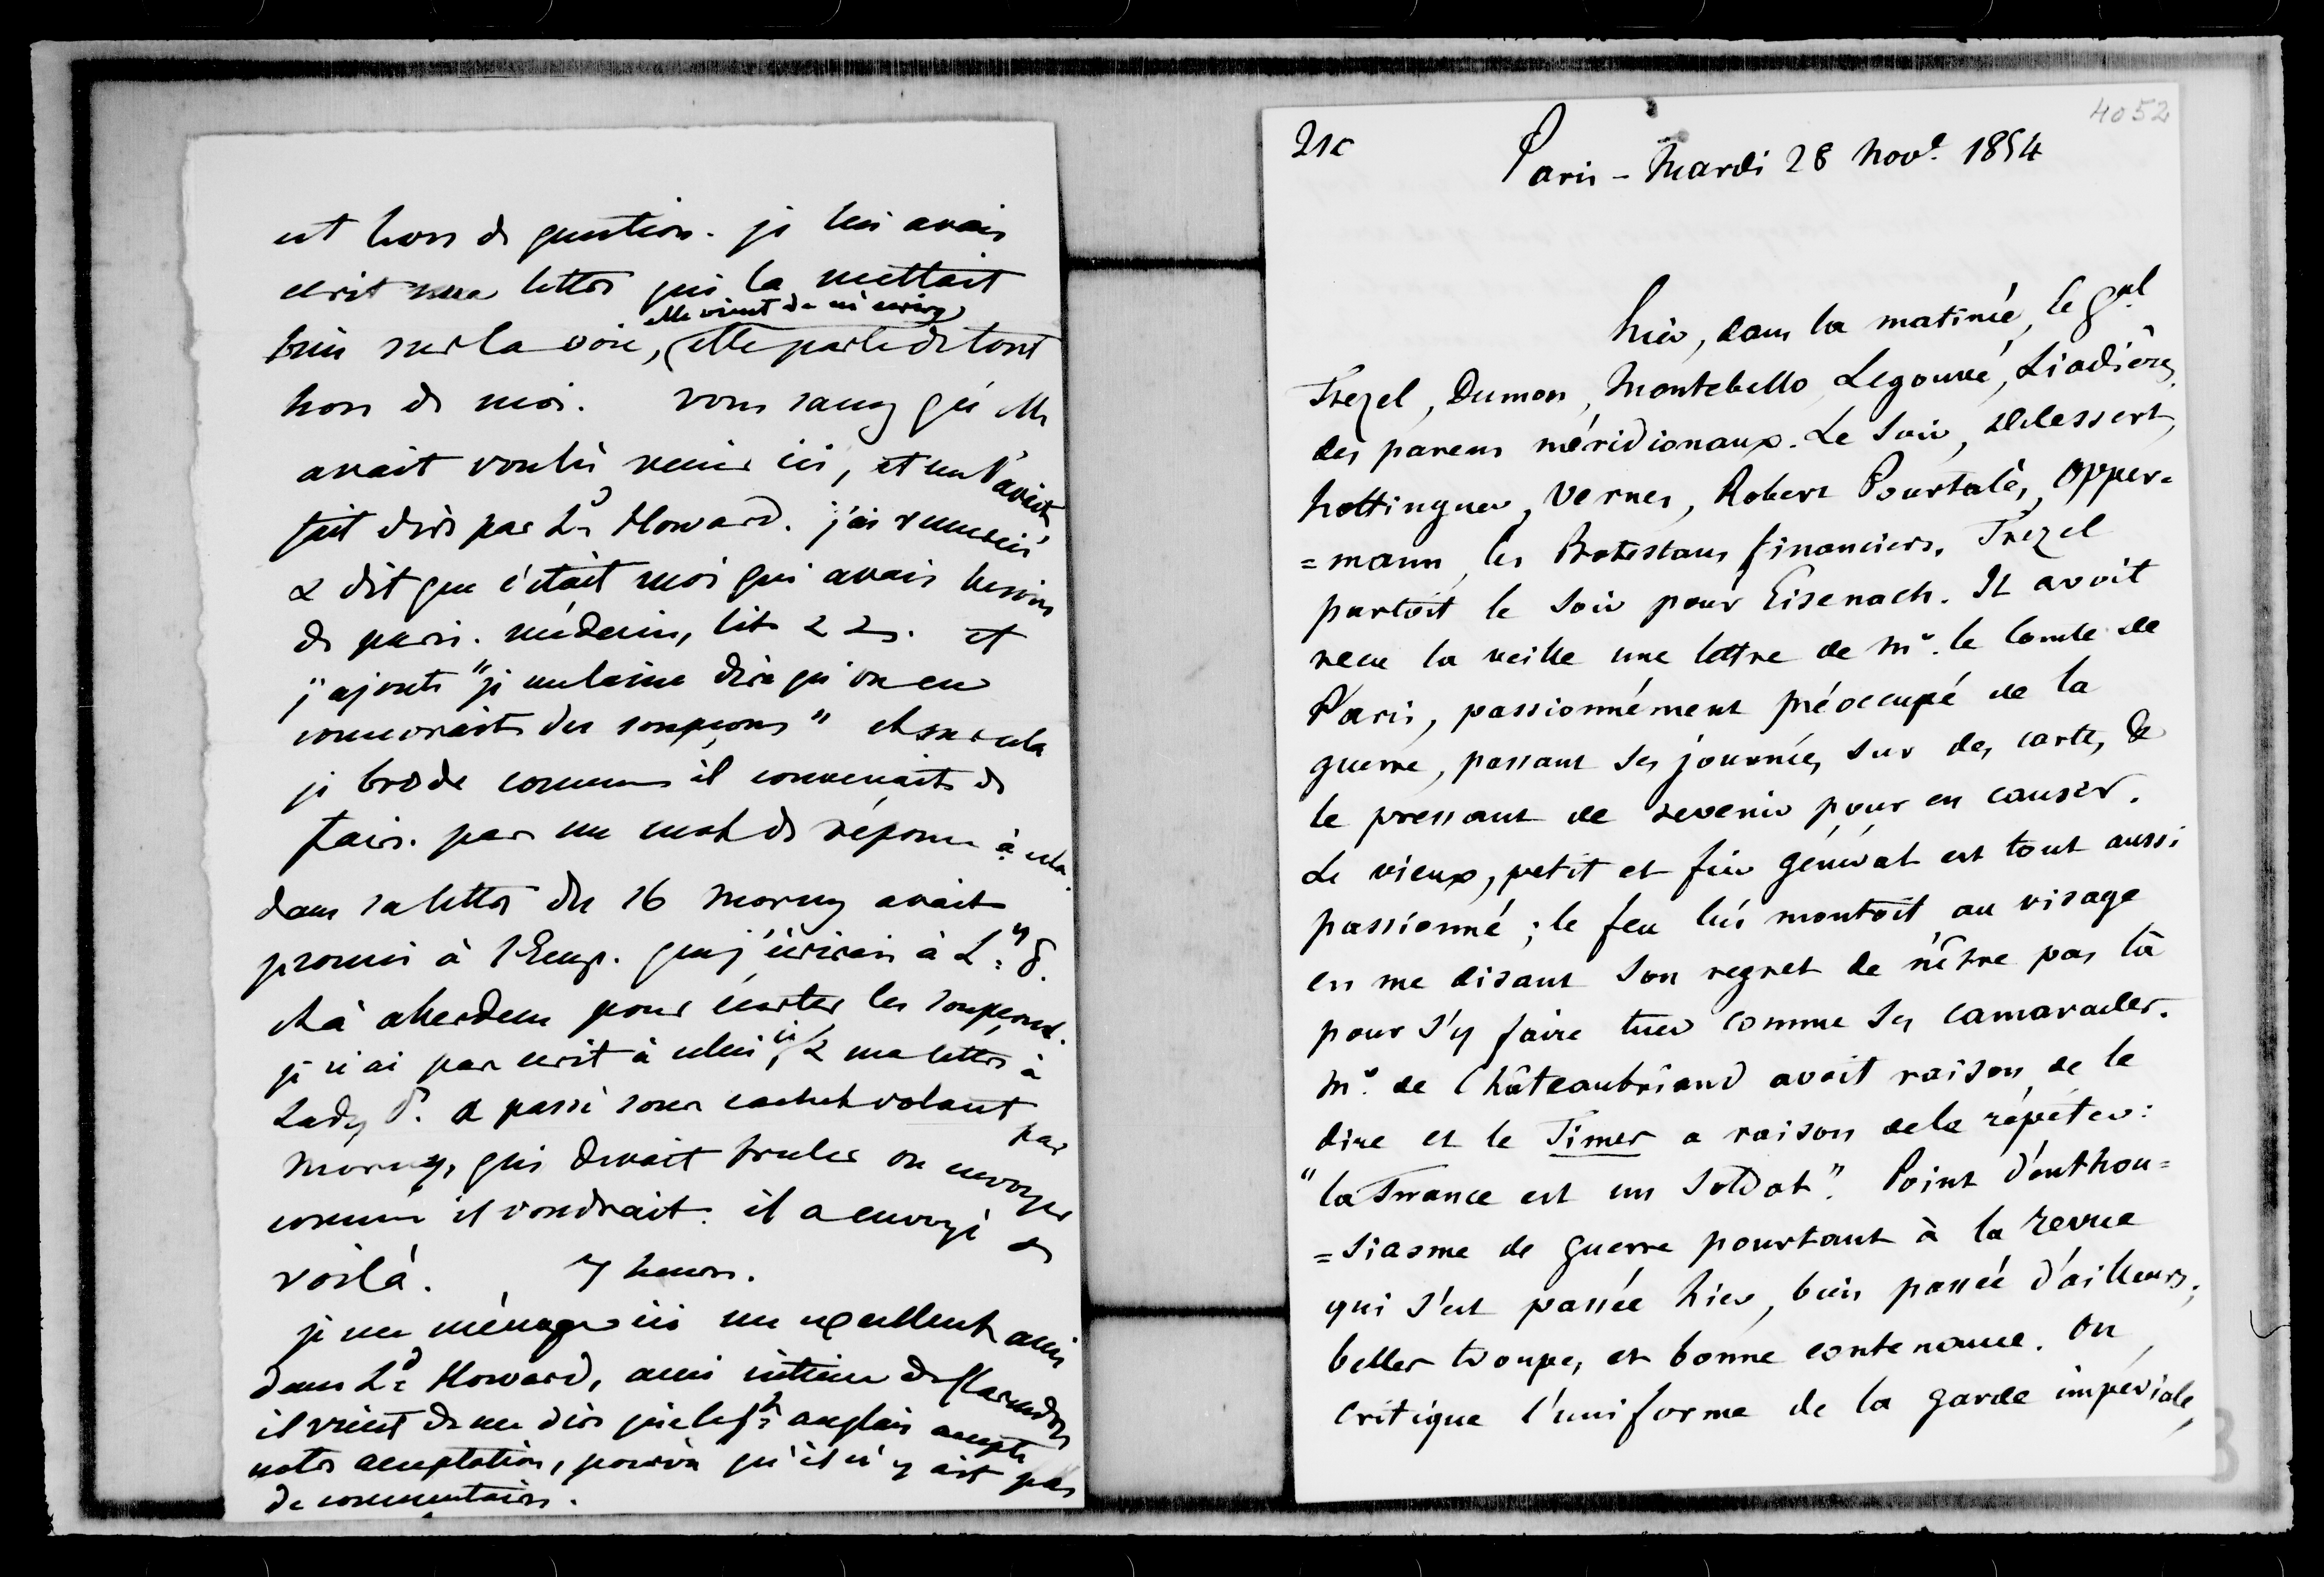 est hors de question. je lui avais
ecrit une lettre qui la mettait
elle vient de m'ecrire
bien sur la voie, elle parle de tout
hors de moi. vous savez qu'elle
avait voulu venir ici, et me l'avait
fait dire par Ld Howard. j'ai remercié
& dit que c'était moi qui avais besoin
de paris. médecin, lit & &. et
j'ajoute "je me laisse dire qu'on en
concevrait des soupçons" et sur cela
je brode comme il convenait de
faire. pas un mot de réponse à cela.
dans sa lettre du 16 Morny avait
promis à l'Emp. que j'écrirais à Ly P.
et à aberdeen pour écarter les soupçons.
je n'ai pas ecrit à celui ci, & ma lettre à
Lady P. a passé sous cachet volant par
Morny, qui devait bruler ou envoyer
comme il voudrait. il a envoyé &
voilà. 7 heures.
je me ménage ici un excellent ami
dans Ld Howard, ami intime de Clarendon
il vient de me dire que le gt anglais accepte
notre acceptation, pourvu qu'il n'y ait pas
de commentaires.
4052
21c
Paris - Mardi 28 Nove. 1854
Hier, dans la matinée, le Gal
Trezel, Dumon, Montebello, Legouvé, Liadières,
des parens méridionaux. Le soir, Delessert,
Hottinguer, Vernes, Robert Pourtalès, Opper=
=mann, les Protestans financiers. Trezel
partoit le soir pour Eisenach. Il avoit
recu la veille une lettre de Mr. le Comte de
Paris, passionnément préoccupé de la
guerre, passant ses journées sur des cartes, &
le pressant de revenir pour en causer.
Le vieux, petit et fin général est tout aussi
passionné ; le feu lui montoit au visage
en me disant son regret de n'être pas là
pour s'y faire tuer comme ses camarades.
Mr. de Châteaubriand avoit raison de le
dire et le Times a raison de le répéter:
"la France est un soldat". Point d'enthou=
=siasme de guerre pourtant à la revue
qui s'est passée hier, bien passée d'ailleurs ;
belles troupes et bonne contenance. On
critique l'uniforme de la garde impériale,